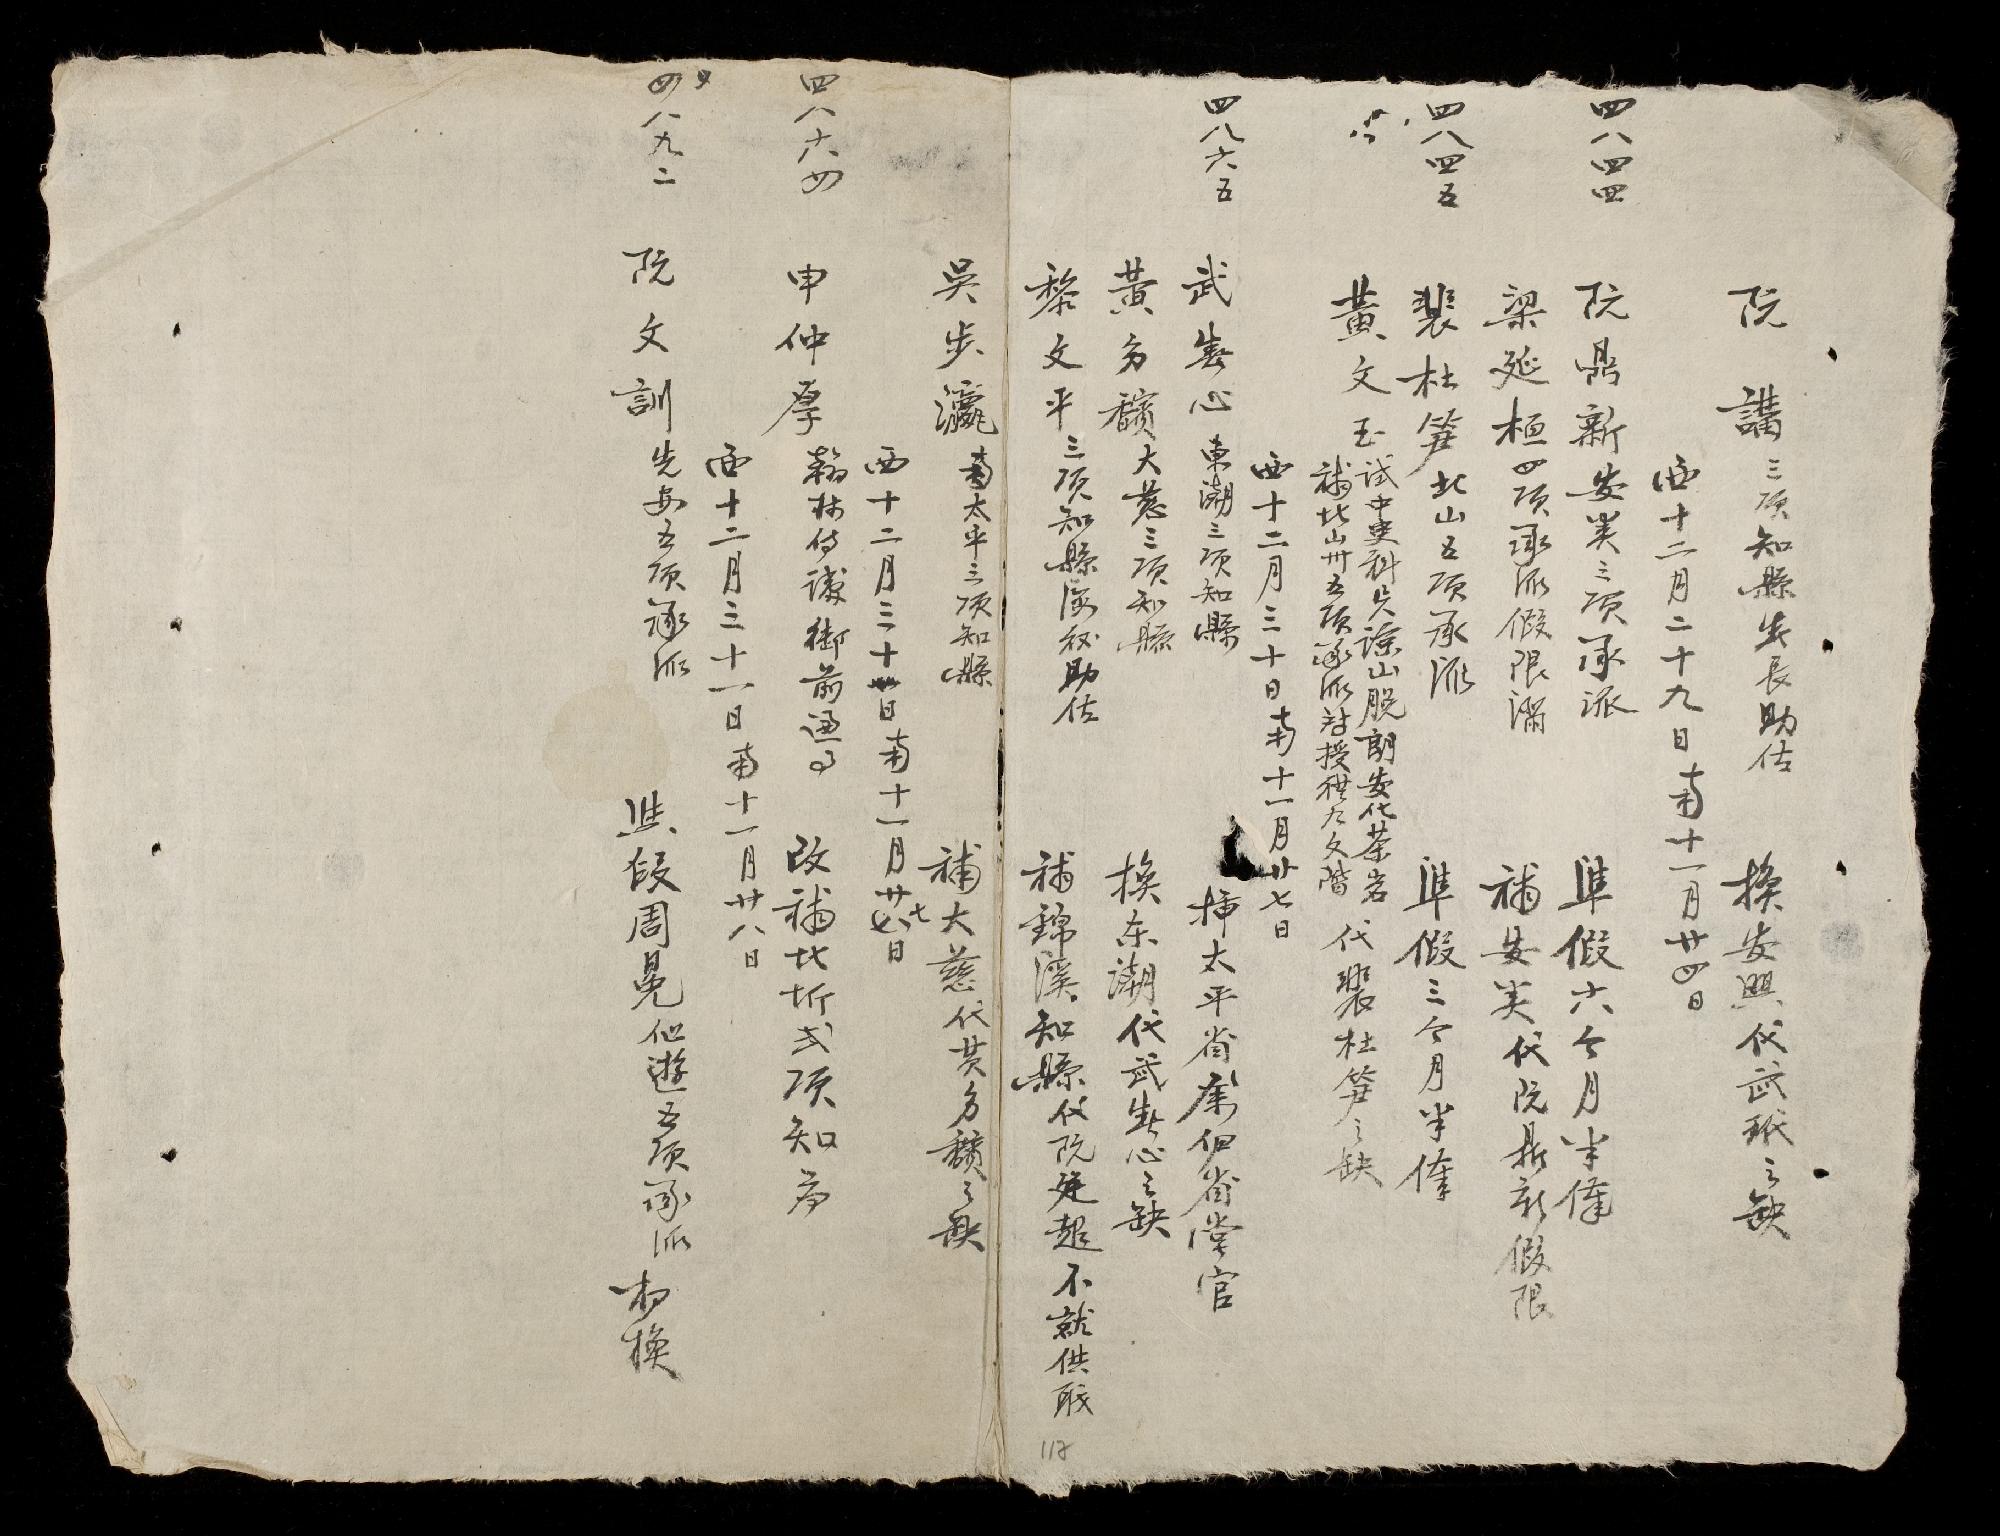 阮講三項知縣先長助佐 換安興代武珉之缺
西十二月二十九日南十一月廿四日
四八四四 阮鼎新安美三項承派 準假六个月半俸
梁延桓四項承派假限滿 補安美代阮鼎新假限
四八四五 裴杜笋北山五項承派 準假三个月半俸
黃文玉試中吏科貝諒山脫朗安化茶岩
補北山州五項承派詩授從九文階 代裴杜笋之缺
西十二月三十日南十一月廿七日
四八六五 武春心東潮三項知縣 插太平省 省堂官
黃多穬大慈三項知縣 換東潮代武春心之缺
黎文平三項知縣 助佐 補錦溪知縣代阮廷超不就供職
吳步瀛南太平三項知縣 補大慈代黃多穬之缺
西十二月三十日南十一月廿七日
四八六四 申仲厚翰林侍讀御前通事 改補北圻弍項知府
西十二月三十一日南十一月廿八日
四八九二 阮文訓先安五項承派 與段周冕仙遊五項承派相換
117